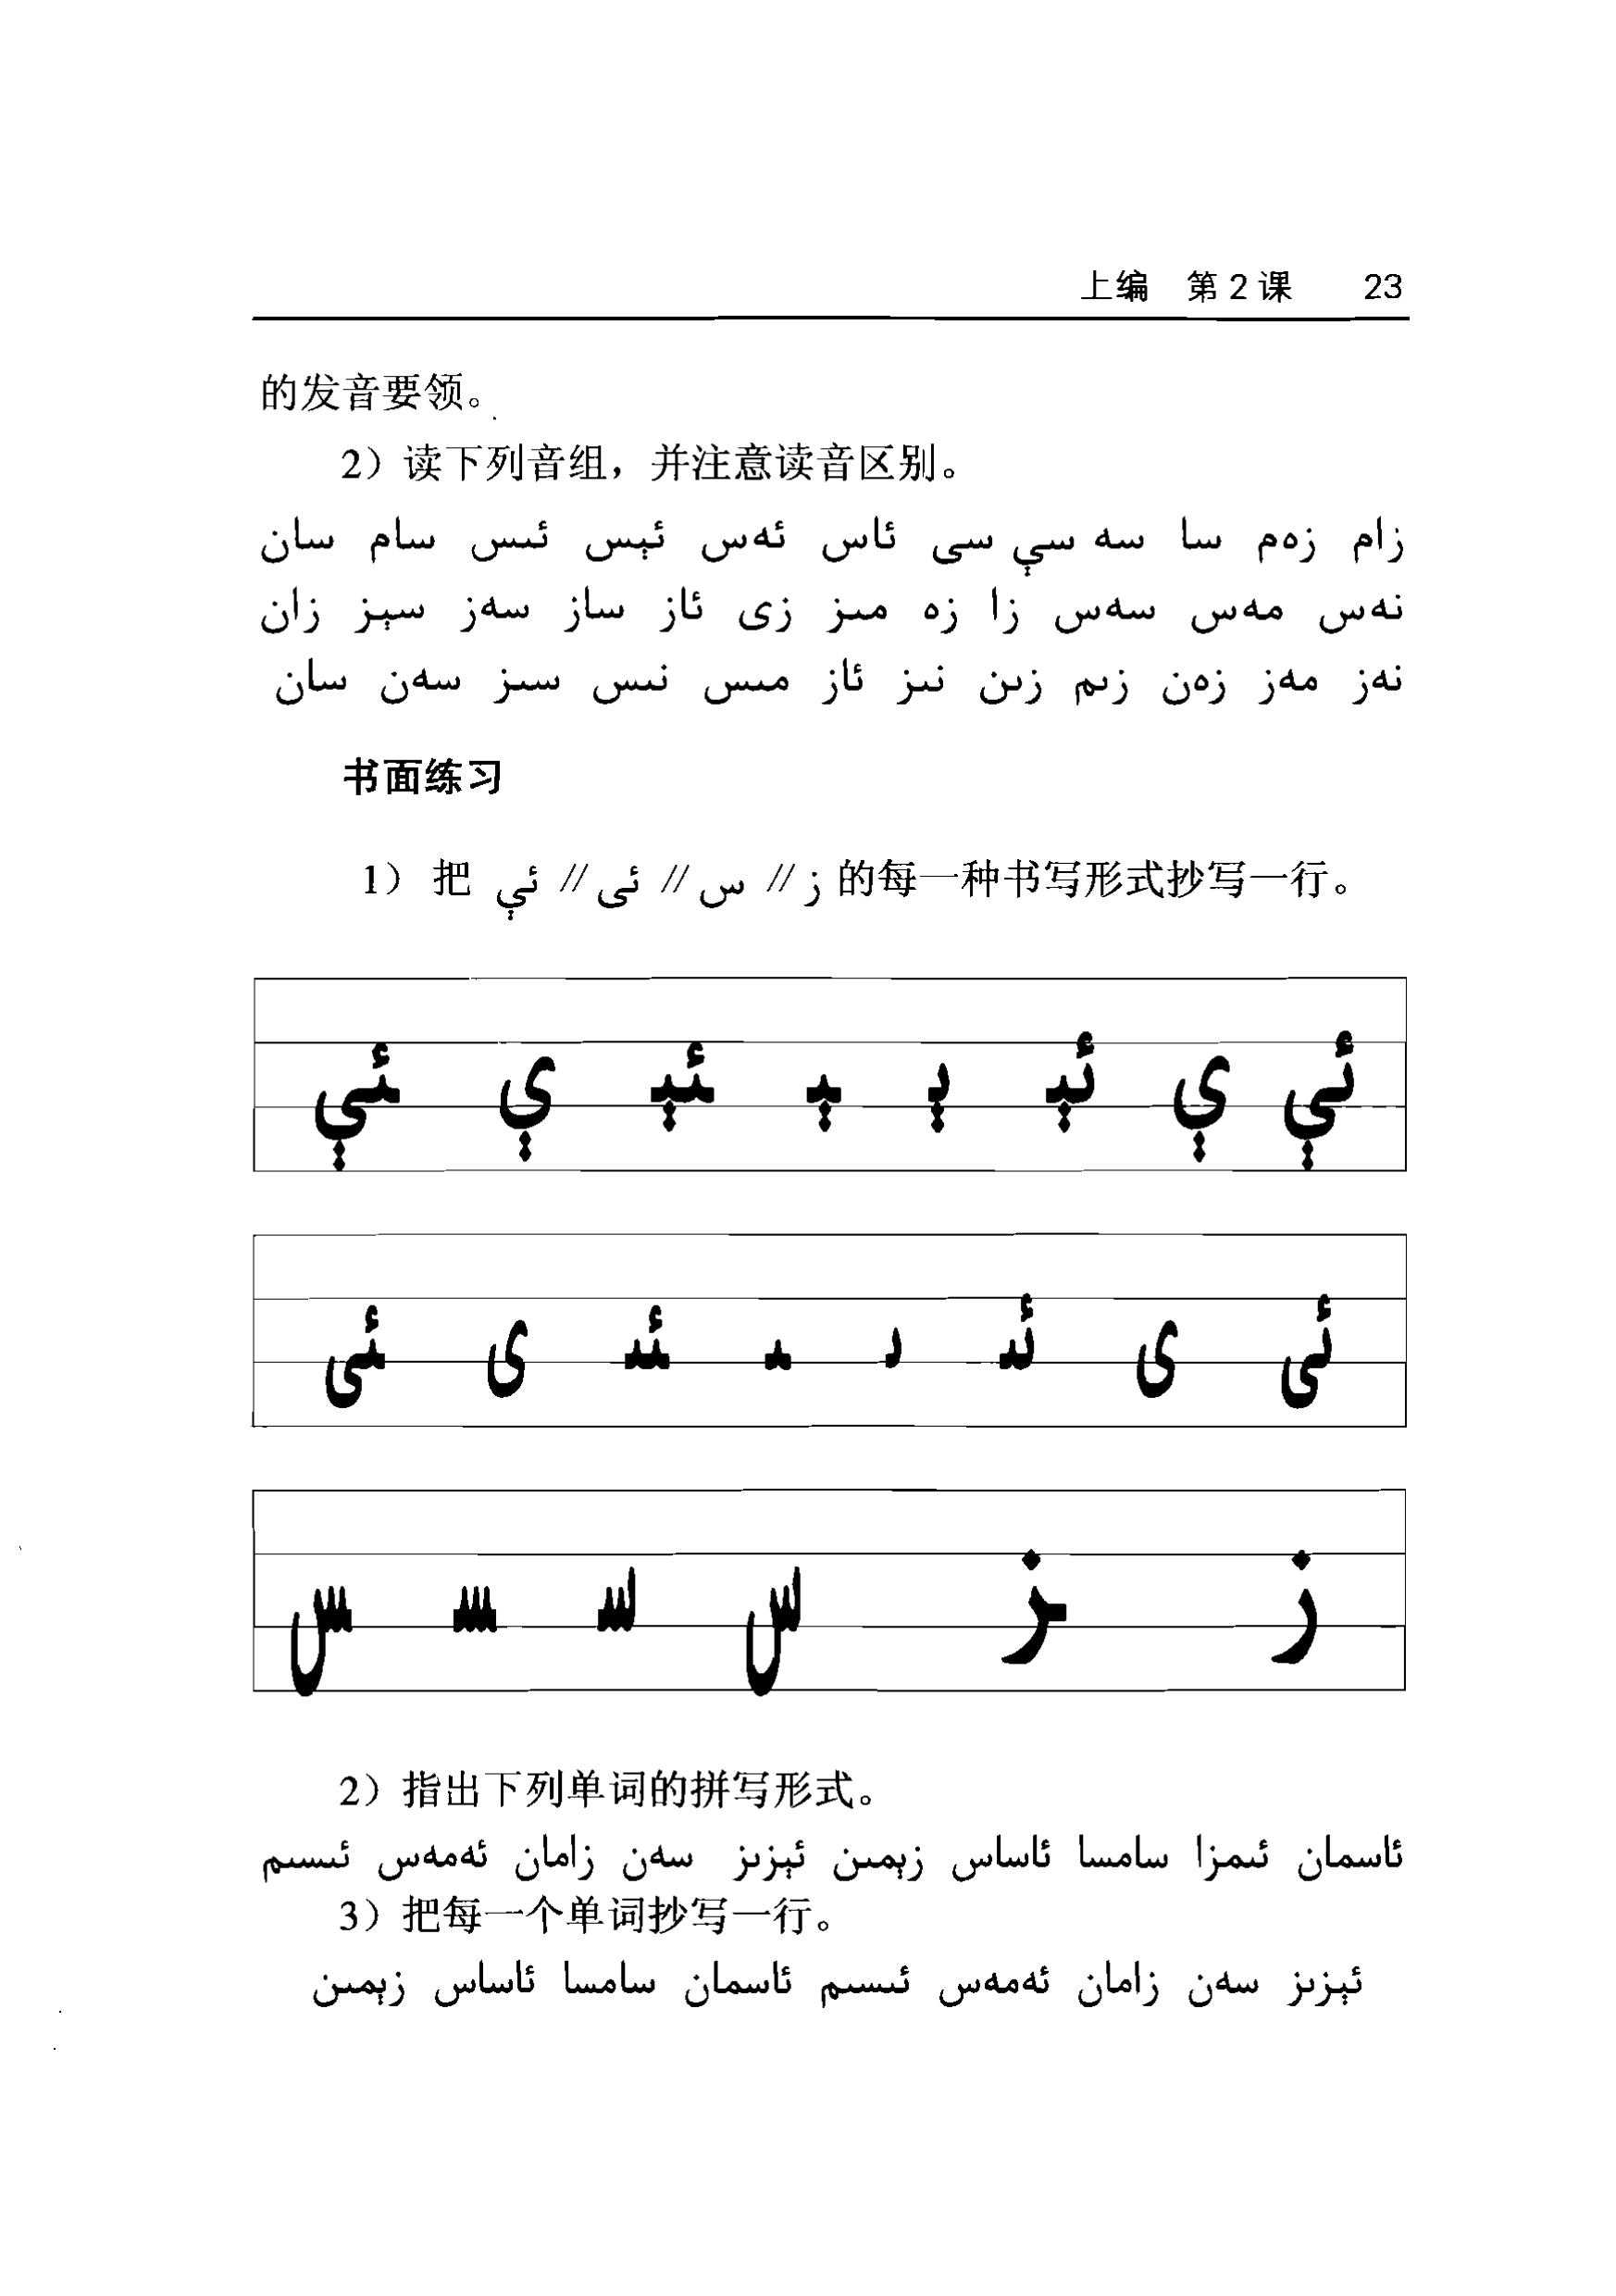 上编 第2课 23
的发音要领。
2）读下列音组，并注意读音区别。
زام زەم سا سە سې سى ئاس ئەس ئېس ئىس سام سان
نەس مەس سەس زا زە مىز زى ئاز ساز سەز سېز زان
نەز مەز زەن زىم زىن نىز ئاز مىس نىس سىز سەن سان
书面练习
1） 把 ئې // ئى // س // ز 的每一种书写形式抄写一行。
ئې ې ئېـ ېـ ـېـ ـئېـ ې ـئې
ئى ى ئىـ ىـ ـىـ ـئىـ ى ـئى
ز ـز س سـ ـسـ ـس
2）指出下列单词的拼写形式。
ئاسمان ئىمزا سامسا ئاساس زېمىن ئېزىز سەن زامان ئەمەس ئىسىم
3）把每一个单词抄写一行。
ئېزىز سەن زامان ئەمەس ئىسىم ئاسمان سامسا ئاساس زېمىن